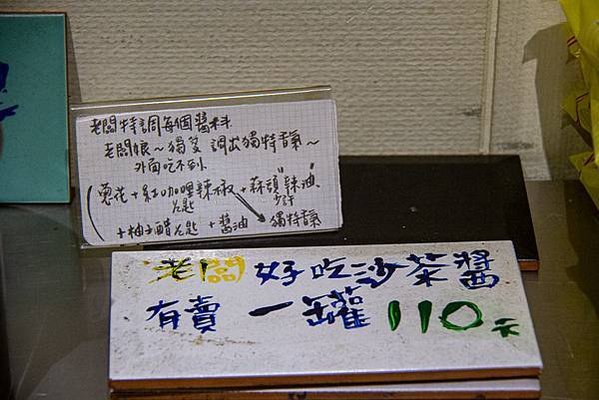 老闆特調每個醬料
老闆娘~獨家 調出獨特香氣~
外面吃不到
蔥花+紅咖哩辣椒+蒜頭"辣油"
2匙
少許
+柚子醋2匙 + 醬油 獨特香氣
老闆 好吃沙茶醬
有賣 一罐 110元